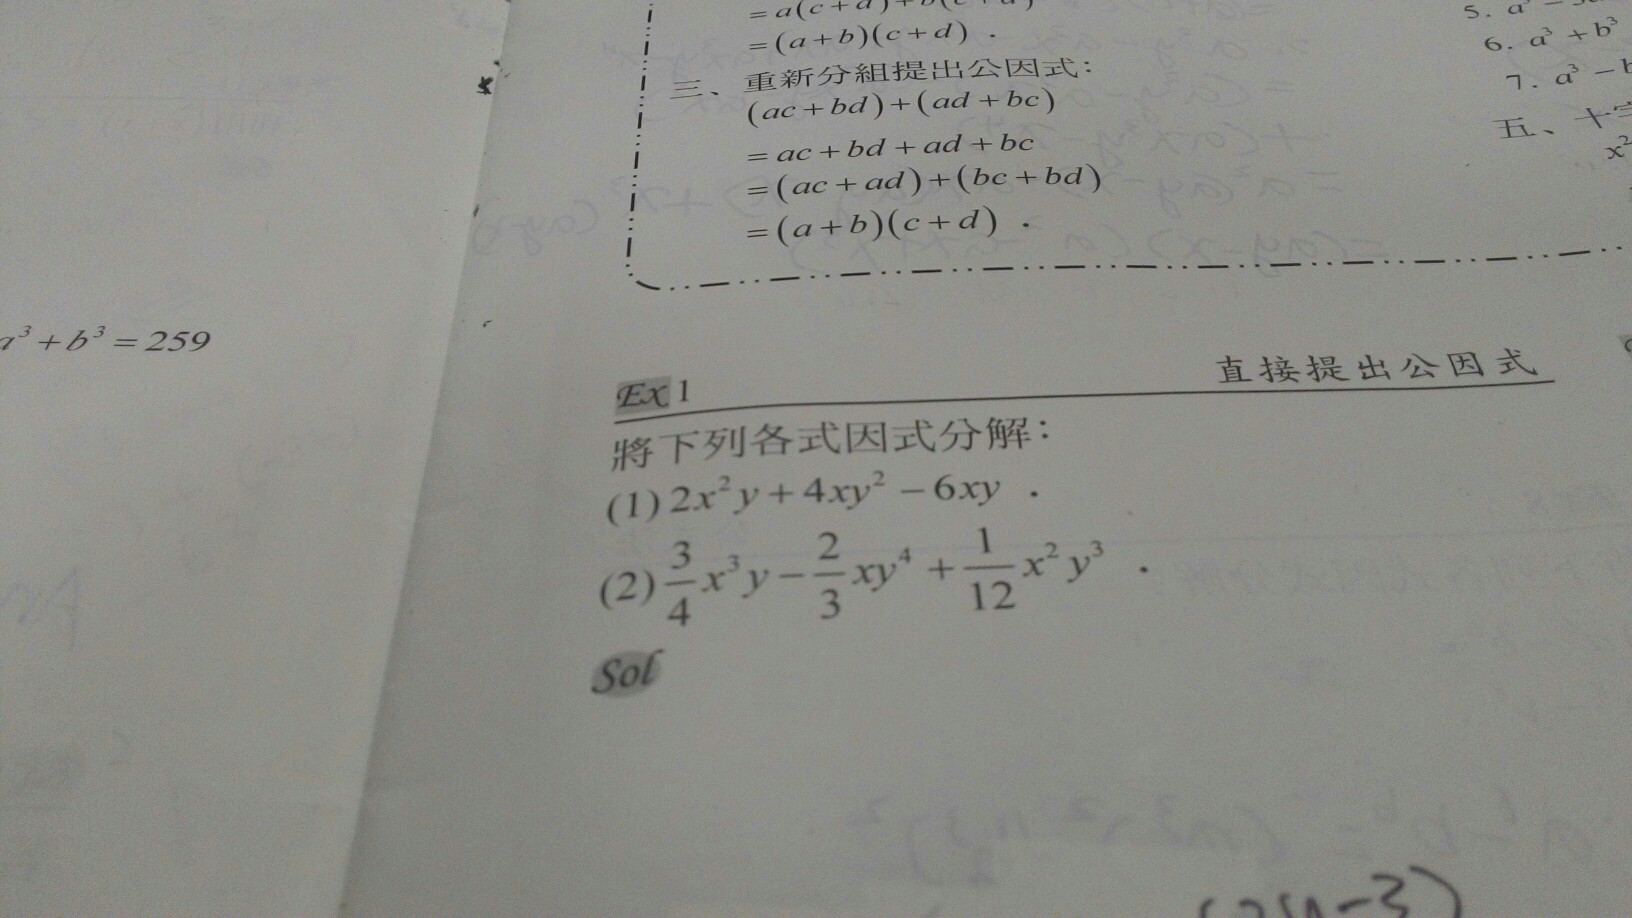 a³+b³=259
=(a+b)(c+d) .
三、重新分組提出公因式：
(ac+bd)+(ad+bc)
=ac+bd+ad+bc
=(ac+ad)+(bc+bd)
=(a+b)(c+d) .
6. a³+b³
7. a³−
五、十
Ex 1 直接提出公因式
將下列各式因式分解：
(1) 2x²y+4xy²−6xy .
(2) 3/4 x³y − 2/3 xy⁴ + 1/12 x²y³ .
Sol